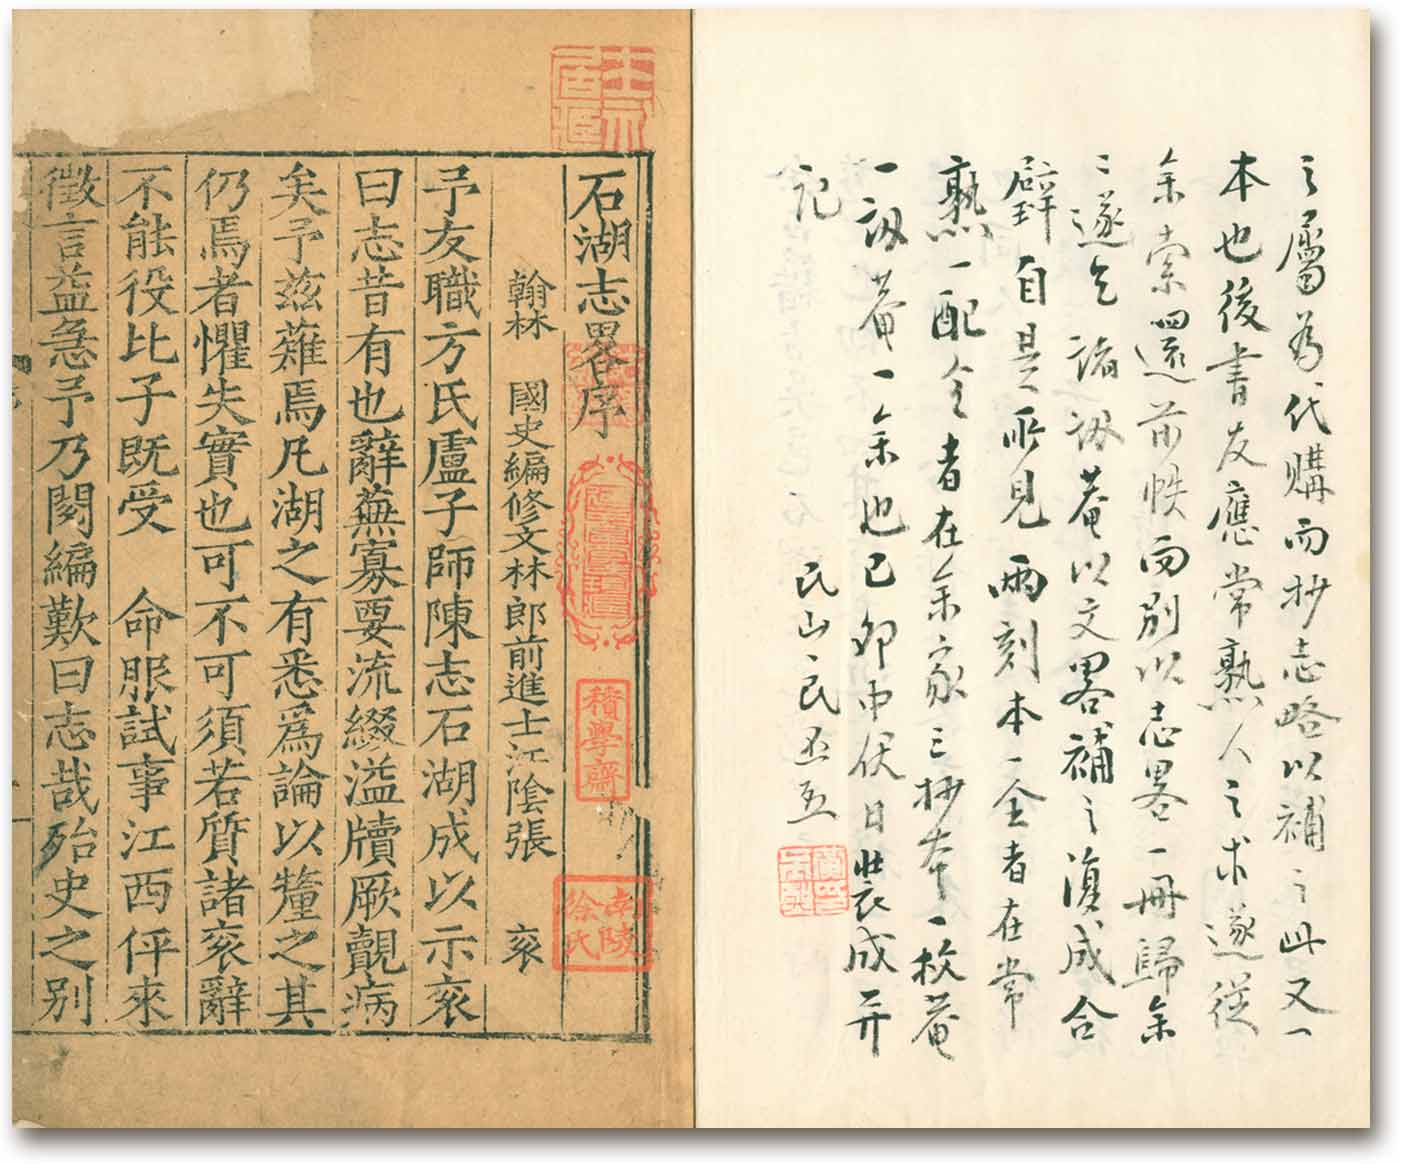 之屬為代購而抄志略以補之此又一
本也後書友應常熟人之求遂從
余索四還前帙而别以志畧一冊歸余
〻遂乞諸訒菴以文畧補之復成合
璧自是所見兩刻本一全者在常
熟一配全者在余家三抄本一枚菴
一訒菴一余也己卯中伏日裝成并
記
民山山民丕烈
石湖志畧序
翰林 國史編修文林郎前進士江陰張 衮
予友職方氏盧子師陳志石湖成以示衮
曰志昔有也辭蕪寡要流綴溢牘厥覿病
矣予茲薙焉凡湖之有悉爲論以釐之其
仍焉者懼失實也可不可須若質諸衮辭
不能役比子既受 命服試事江西伻來
徵言益急予乃閱編歎曰志哉殆史之别
積學齋
南陵
徐氏